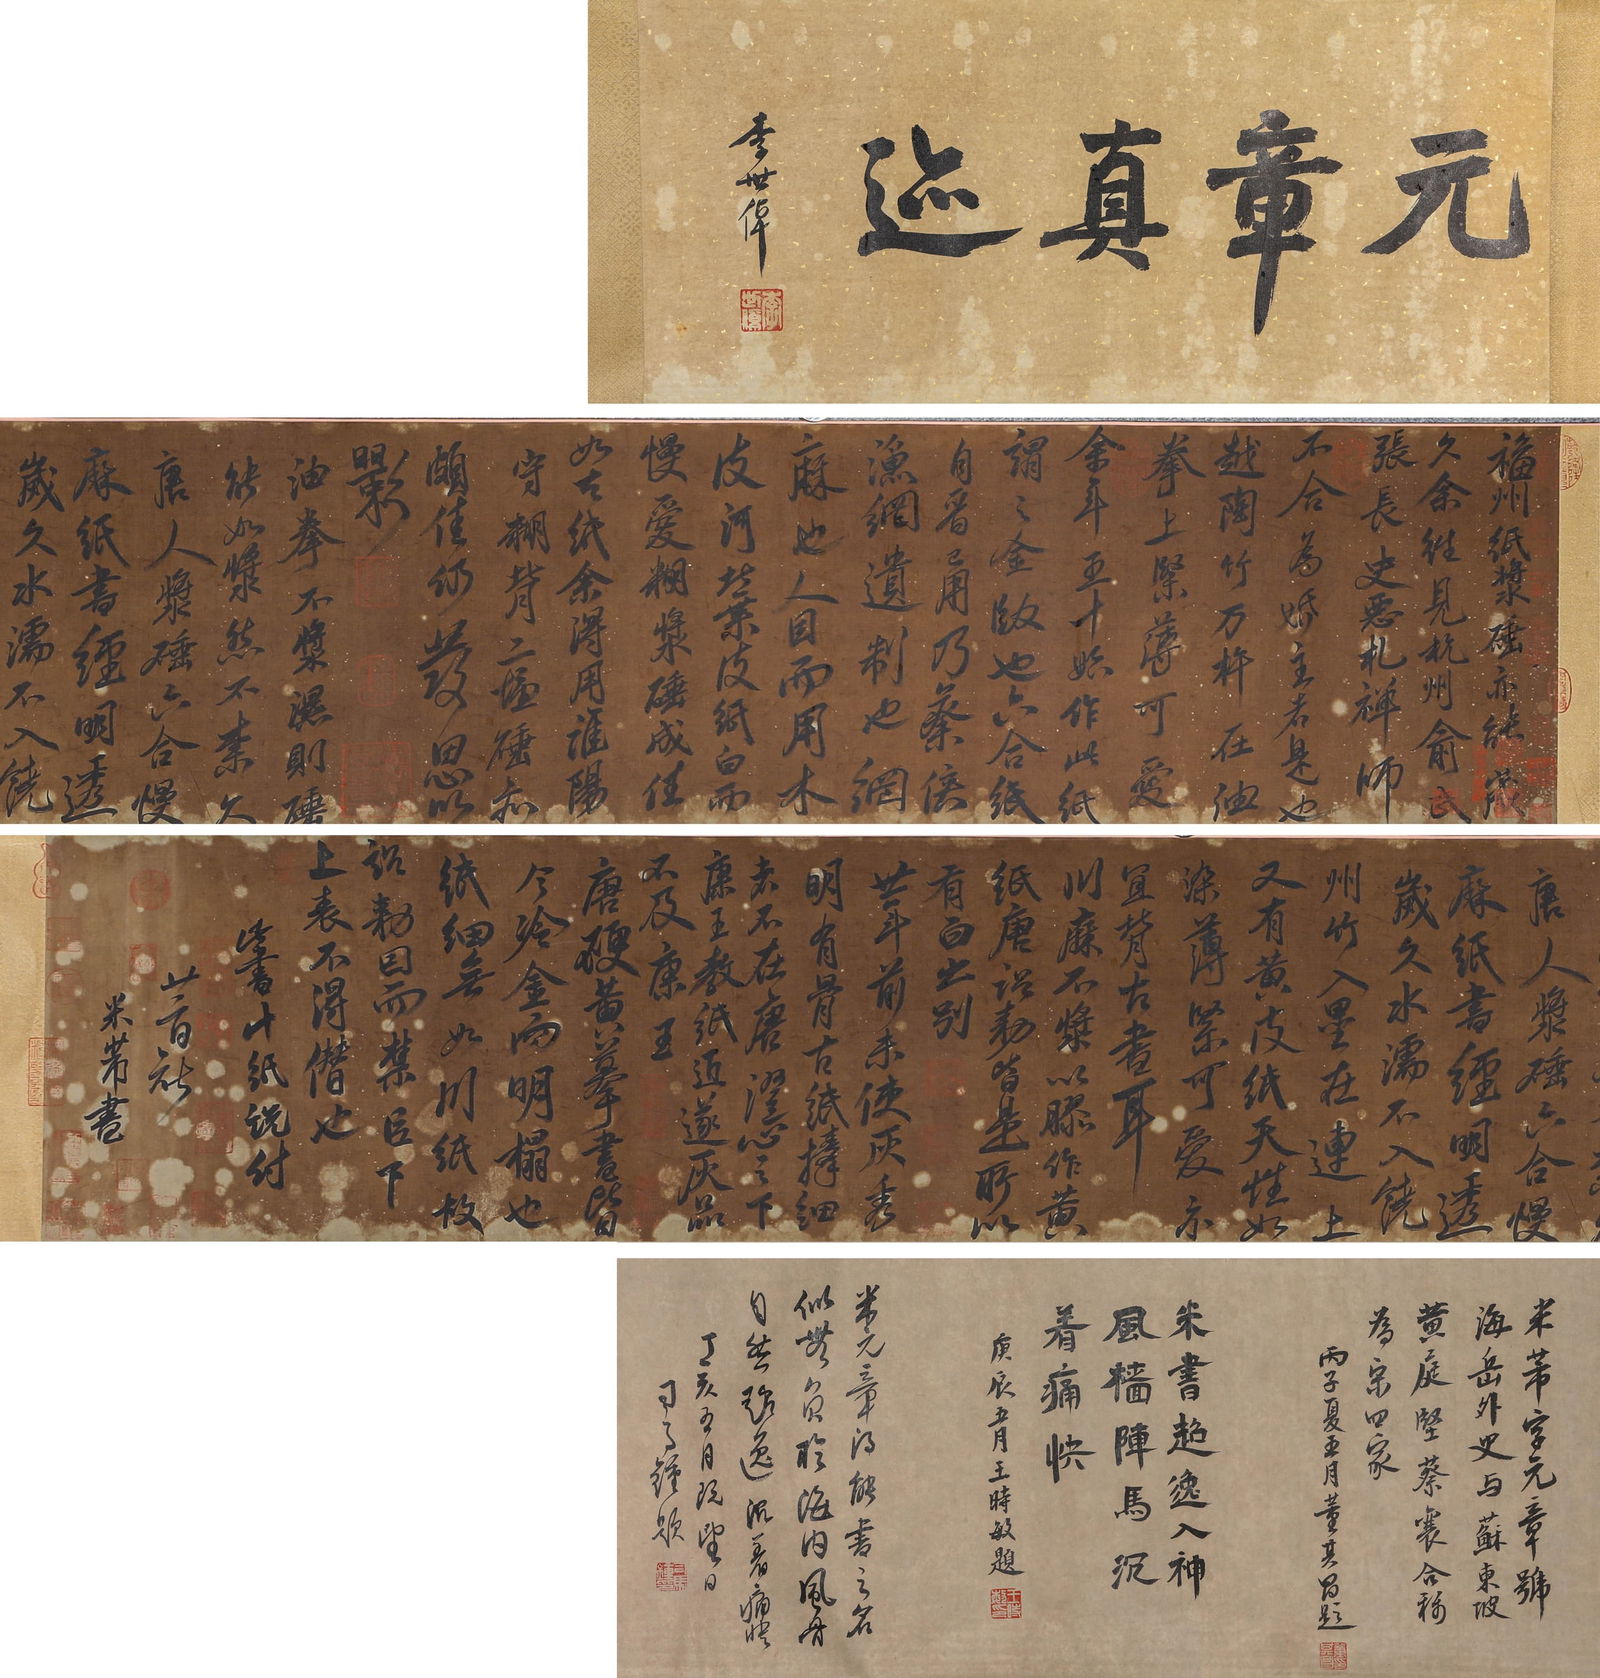 元章真迹
李世倬
福州紙漿硾亦能歲
久余往見杭州俞氏
張長史惡札禅師
不合為婚主者是也
越陶竹万杵在油
拳上緊薄可愛
余年五十始作此紙
謂之金版也六合紙
自晋已用乃蔡侯
漁網遺制也網
麻也人因而用木
皮河北桑皮紙白而
慢愛糊漿硾成佳
如古紙余得用淮陽
守糊背二幅硾和
頗佳仍發思以
墨影
油拳不漿濕則硾
能如漿然不耒久
唐人漿硾六合慢
麻紙書經明透
歲久水濡不入饒
唐人漿硾六合慢
麻紙書經明透
歲久水濡不入饒
州竹入墨在連上
又有黄皮紙天性如
染薄緊可愛亦
宜背古書耳
川麻不漿以膠作黄
紙唐詔敕皆是所以
有白之别
卅年前未使灰秀
明有骨古紙捧細
者不在唐澄心之下
康王教紙近遂灰品
不及康王
唐硬黄摹書皆
今冷金而明榻也
紙細無如川紙故
詔敕因而禁臣下
上表不得僭也
書十紙說付
米芾書
米芾字元章號
海岳外史与蘇東坡
黄庭堅蔡襄合称
為宋四家
丙子夏五月董其昌題
米書超逸入神
風檣陣馬沉
着痛快
庚辰五月王時敏題
米元章以能書之名
似無負於海内風骨
自然超逸沉着痛快
丁亥五月既望日
司馬鍾題